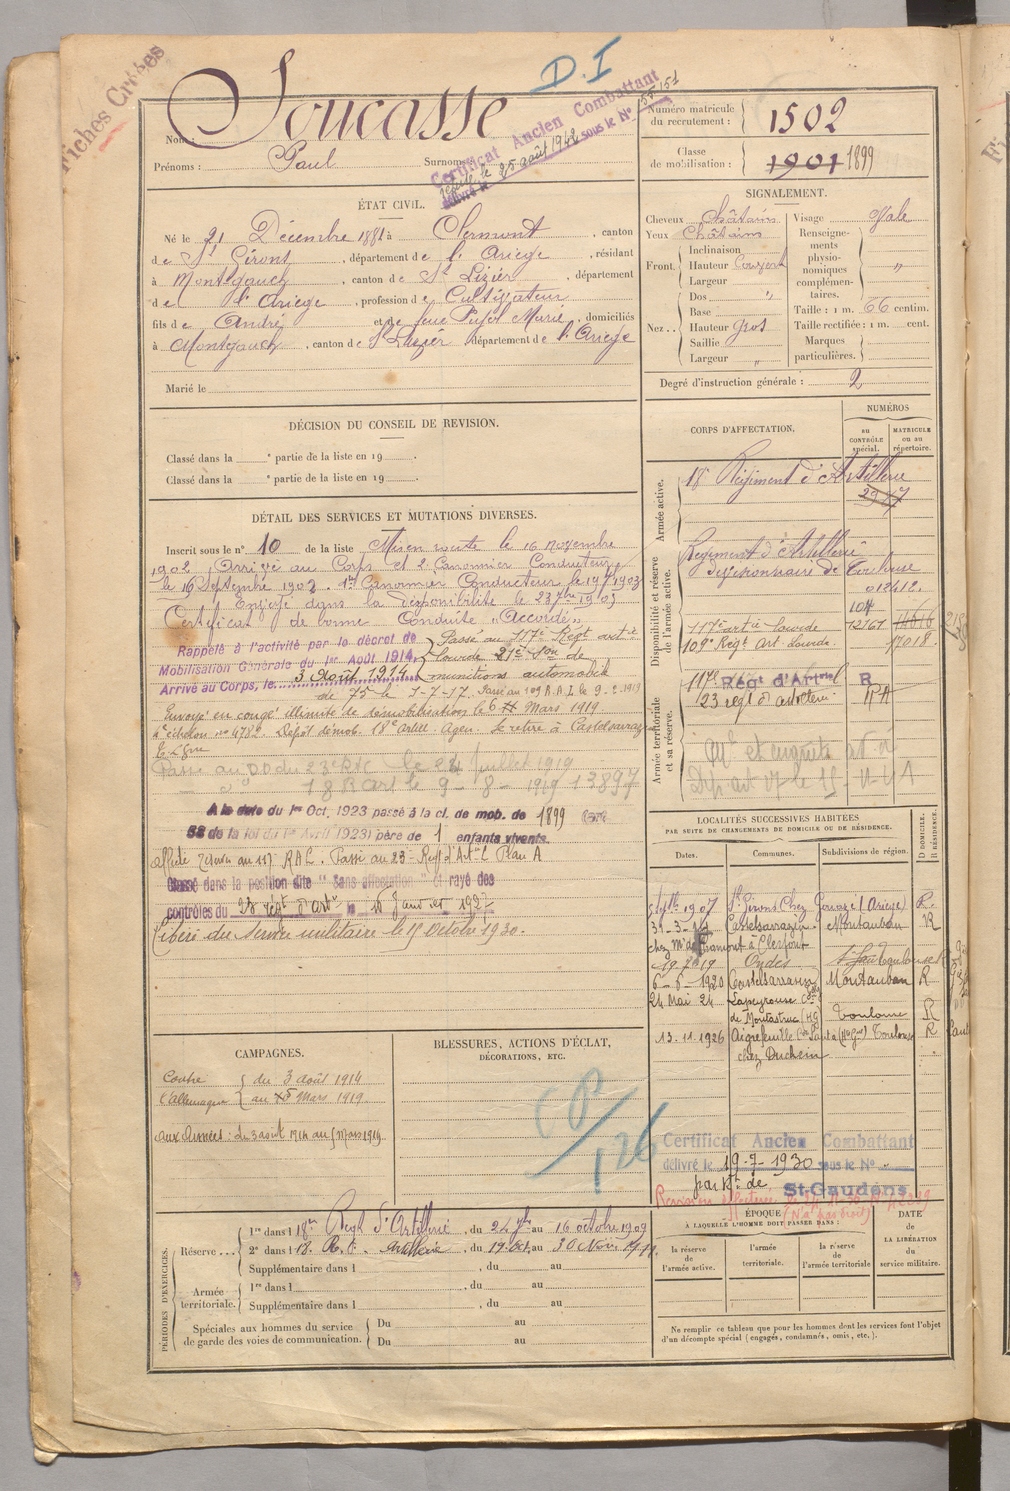 D.I
Fiches Croisées
Soucasse
Nom :
Prénoms : Paul Surnoms
Certificat Ancien Combattant
délivré le 25 août 1942 sous le N°
Numéro matricule du recrutement : 1502
Classe de mobilisation : 1901 1899
ÉTAT CIVIL.
Né le 21 Décembre 1881 à Clermont, canton
de St Girons, département de l'Ariège, résidant
à Montégauch, canton de St Lizier, département
de l'Ariège, profession de Cultivateur
fils de André et de feue Pujol Marie, domiciliés
à Montgauch, canton de St Lizier département de l'Ariège
Marié le
SIGNALEMENT.
Cheveux châtain
Yeux Châtains
Front. Inclinaison
Hauteur Couvert
Largeur
Nez.. Dos "
Base
Hauteur gros
Saillie
Largeur "
Visage Ovale
Renseignements physionomiques complémentaires. "
Taille : 1 m. 66 centim.
Taille rectifiée : 1 m. cent.
Marques particulières.
Degré d'instruction générale : 2
DÉCISION DU CONSEIL DE REVISION.
Classé dans la e partie de la liste en 19 .
Classé dans la e partie de la liste en 19 .
CORPS D'AFFECTATION.
NUMÉROS
au CONTRÔLE spécial.
MATRICULE ou au répertoire.
Armée active.
18e Régiment d'Artillerie
2917
Disponibilité et réserve de l'armée active.
Régiment d'Artillerie
Divisionnaire de Toulouse
012612.
104
117e art ie Lourde 12761 14616
109e Regt Art. Lourde. 17018.
Armée territoriale et sa réserve.
117e Régt d'Artiel R
23 regt d'artillerie RA
DÉTAIL DES SERVICES ET MUTATIONS DIVERSES.
Inscrit sous le n° 10 de la liste Mis en route le 16 novembre
1902, Arrivé au Corps et 2e Canonnier Conducteur
le 16 Septembre 1902. 1er Canonnier Conducteur le
Envoyé dans la disponibilité le 23
Certificat de bonne Conduite "Accordé"
Rappelé à l'activité par le décret de
Mobilisation Générale du 1er Août 1914
Arrivé au Corps, le 3 Août 1914
Passé au 117e Régt art ie
lourde 21e Son de
munitions automobile
de 75 le 1-7-17. Passé au 109 R.A.L le 9-2-1919
Envoyé en congé illimité de démobilisation le 6 Mars 1919.
échelon no 4782. Dépôt démob. 18e Artil. Agen. Se retire à Castelsarrazin
T. et Gne
Passé au D.D du 23e RAC le 24 juillet 1919
18 R art le 9-8-1919 13897
A la date du 1er Oct. 1923 passé à la cl. de mob. de 1899
58 de la loi du 1er Avril 1923) père de 1 enfants vivants.
Affecté au 117 RAL. Passé au 23e Regt d'Art ie Plan A
Classé dans la position dite "Sans affectation" et rayé des
contrôles du 23 regt d'artie le 15 Janvier 1927
Libéré du service militaire le 15 Octobre 1930.
LOCALITÉS SUCCESSIVES HABITÉES
PAR SUITE DE CHANGEMENTS DE DOMICILE OU DE RÉSIDENCE.
Dates. Communes. Subdivisions de région. D domicile. R résidence.
1907 St Girons Chez (Ariège) R.
Castelsarrazin Montauban R
Ondes
6-6-1920 Castelsarrasin Montauban R
24 Mai 24 Lapeyrouse
de Montastruc (HG) Toulouse R
13.11.1926 Aigrefeuille Toulouse R
chez Duchein
CAMPAGNES.
Contre l'Allemagne { du 3 août 1914
au Mars 1919.
aux Armées : du 3 août 1914 au 5 Mars 1919.
BLESSURES, ACTIONS D'ÉCLAT,
DÉCORATIONS, ETC.
CP/126
Certificat Ancien Combattant
délivré le 19-7-1930 sous le N° "
par St-Gaudens
PÉRIODES D'EXERCICES.
Réserve ... 1re dans l 18me Régt d'Artillerie, du 24 7bre au 16 octobre 1909
2e dans l 18. R. d'Artillerie, du 19 Oct. au 30 Nov. 1911.
Supplémentaire dans l , du au
Armée territoriale. 1re dans l , du au
Supplémentaire dans l , du au
Spéciales aux hommes du service de garde des voies de communication. Du au
Du au
ÉPOQUE
À LAQUELLE L'HOMME DOIT PASSER DANS :
la réserve de l'armée active.
l'armée territoriale.
la réserve de l'armée territoriale
DATE de LA LIBÉRATION du service militaire.
Ne remplir ce tableau que pour les hommes dont les services font l'objet
d'un décompte spécial (engagés, condamnés, omis, etc.).